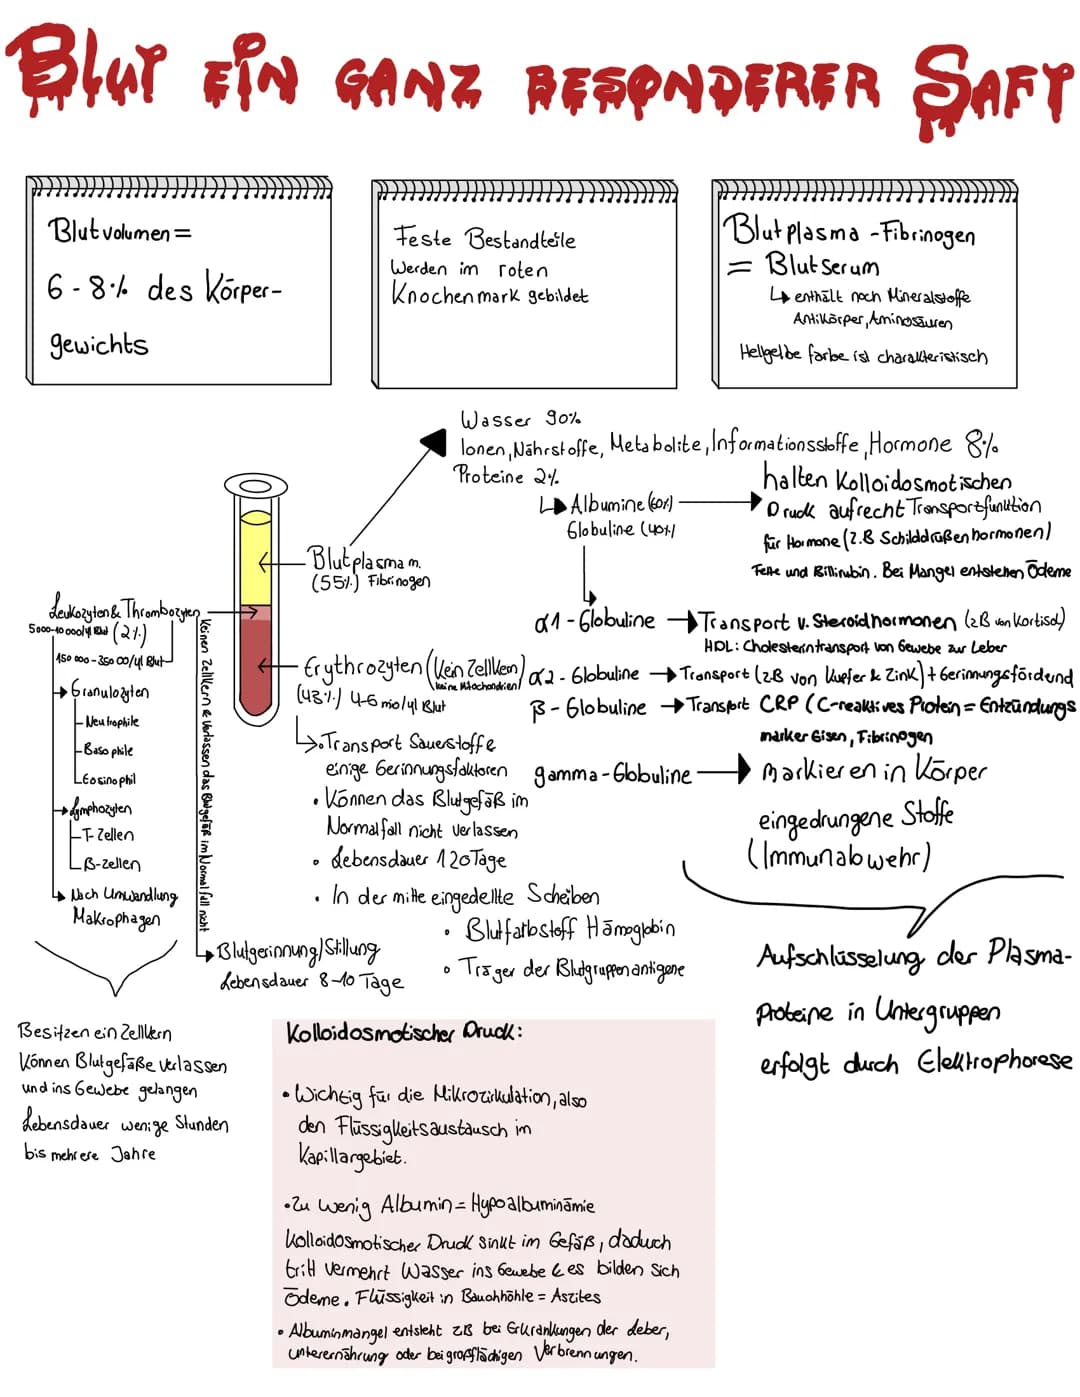 Blut ein ganz besonderer Saft
Blutvolumen =
6-8% des Körper-
gewichts
Feste Bestandteile
Werden im roten
Knochenmark gebildet
Blutplasma -Fibrinogen
= Blutserum
↳ enthält noch Mineralstoffe
Antikörper, Aminosäuren
Hellgelbe farbe ist charakteristisch
Wasser 90%
Ionen, Nährstoffe, Metabolite, Informationsstoffe, Hormone 8%
Proteine 2%
↳ Albumine (60%)
Globuline (40%)
halten Kolloidosmotischen
Druck aufrecht Transportfunktion
für Hormone (z.B Schilddrüßenhormonen)
Fette und Billirubin. Bei Mangel entstehen Ödeme
Blutplasma m.
(55%) Fibrinogen
Leukozyten & Thrombozyten
5000-10 000/µl Blut (2%)
150 000-350 00/µl Blut
→ Granulozyten
- Neutrophile
- Basophile
- Eosinophil
→ Lymphozyten
- T-Zellen
- B-zellen
↳ Nach Umwandlung
Makrophagen
Keinen Zellkern & Verlassen das Blutgefäß im Normalfall nicht
→ Blutgerinnung/Stillung
Lebensdauer 8-10 Tage
Erythrozyten (Kein Zellkern)
keine Mitochondrien
(43%) 4-6 mio/µl Blut
↳ • Transport Sauerstoffe
einige Gerinnungsfaktoren
• Können das Blutgefäß im
Normalfall nicht verlassen
• Lebensdauer 120 Tage
• In der mitte eingedellte Scheiben
• Blutfarbstoff Hämoglobin
• Träger der Blutgruppenantigene
α1-Globuline → Transport v. Steroidhormonen (zB von Kortisol)
HDL: Cholesterintransport von Gewebe zur Leber
α2-Globuline → Transport (zB von Kupfer & Zink) + Gerinnungsfördernd
β-Globuline → Transport CRP (C-reaktives Protein = Entzündungs
marker Eisen, Fibrinogen
gamma-Globuline → markieren in Körper
eingedrungene Stoffe
(Immunabwehr)
Aufschlüsselung der Plasma-
Proteine in Untergruppen
erfolgt durch Elektrophorese
Besitzen ein Zellkern
Können Blutgefäße verlassen
und ins Gewebe gelangen
Lebensdauer wenige Stunden
bis mehrere Jahre
Kolloidosmotischer Druck:
• Wichtig für die Mikrozirkulation, also
den Flüssigkeitsaustausch im
Kapillargebiet.
• Zu wenig Albumin = Hypoalbuminämie
Kolloidosmotischer Druck sinkt im Gefäß, dadurch
tritt vermehrt Wasser ins Gewebe & es bilden sich
Ödeme. Flüssigkeit in Bauchhöhle = Aszites
• Albuminmangel entsteht zB bei Erkrankungen der Leber,
unterernährung oder bei großflächigen Verbrennungen.